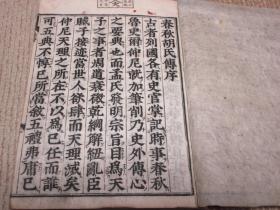 春秋胡氏傳序
古者列國各有史官掌記時事春秋
魯史爾仲尼就加筆削乃史外傳心
之要典也而孟氏發明宗旨目為天
子之事者周道衰微乾綱解紐亂臣
賊子接迹當世人欲肆而天理滅矣
仲尼天理之所在不以為己任而誰
可五典不惇己所當叙五禮弗庸己